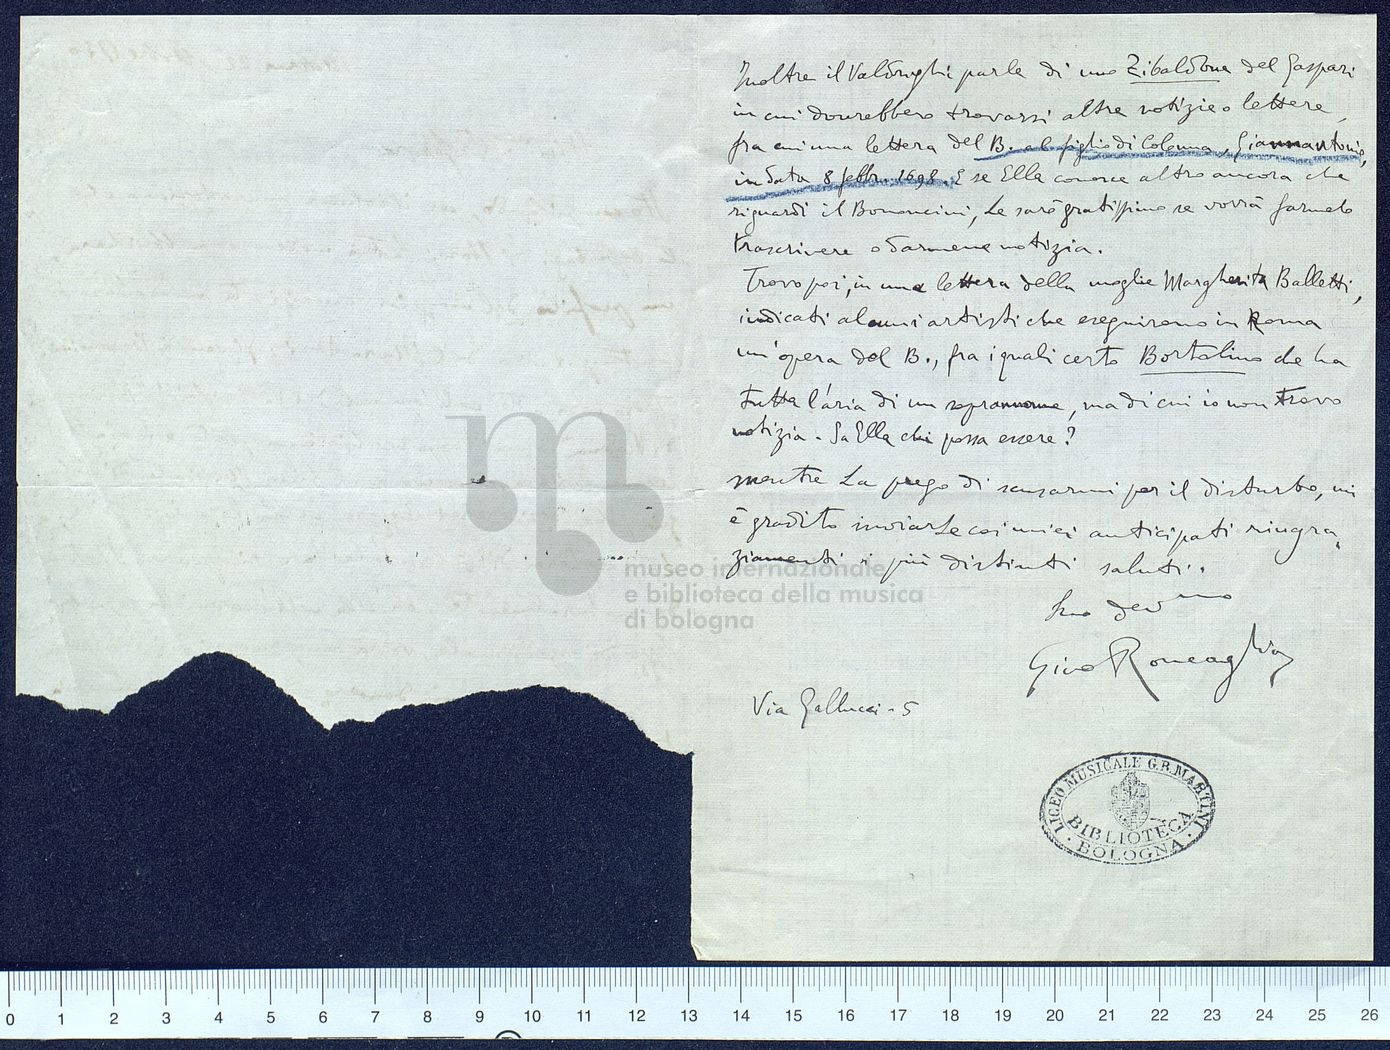 Inoltre il Valdrighi parla di uno Zibaldone del Gaspari
in cui dovrebbero trovarsi altre notizie o lettere,
fra cui una lettera del B. al figlio di Colonna, Giannantonio,
in data 8 febbr. 1698. E se Ella conosce altro ancora che
riguardi il Bononcini, Le sarò gratissimo se vorrà farmelo
trascrivere o darmene notizia.
Trovo poi, in una lettera della moglie Margherita Balletti,
indicati alcuni artisti che eseguirono in Roma
un'opera del B., fra i quali certo Bortolino che ha
tutta l'aria di un soprannome, ma di cui io non trovo
notizia. Sa Ella chi possa essere?
Mentre La prego di scusarmi per il disturbo, mi
è gradito inviarLe coi miei anticipati ringra-
ziamenti i più distinti saluti.
Suo dev mo
Gino Roncaglia
Via Gallucci - 5
LICEO MUSICALE G.B. MARTINI
BIBLIOTECA
· BOLOGNA ·
museo internazionale
e biblioteca della musica
di bologna
0 1 2 3 4 5 6 7 8 9 10 11 12 13 14 15 16 17 18 19 20 21 22 23 24 25 26